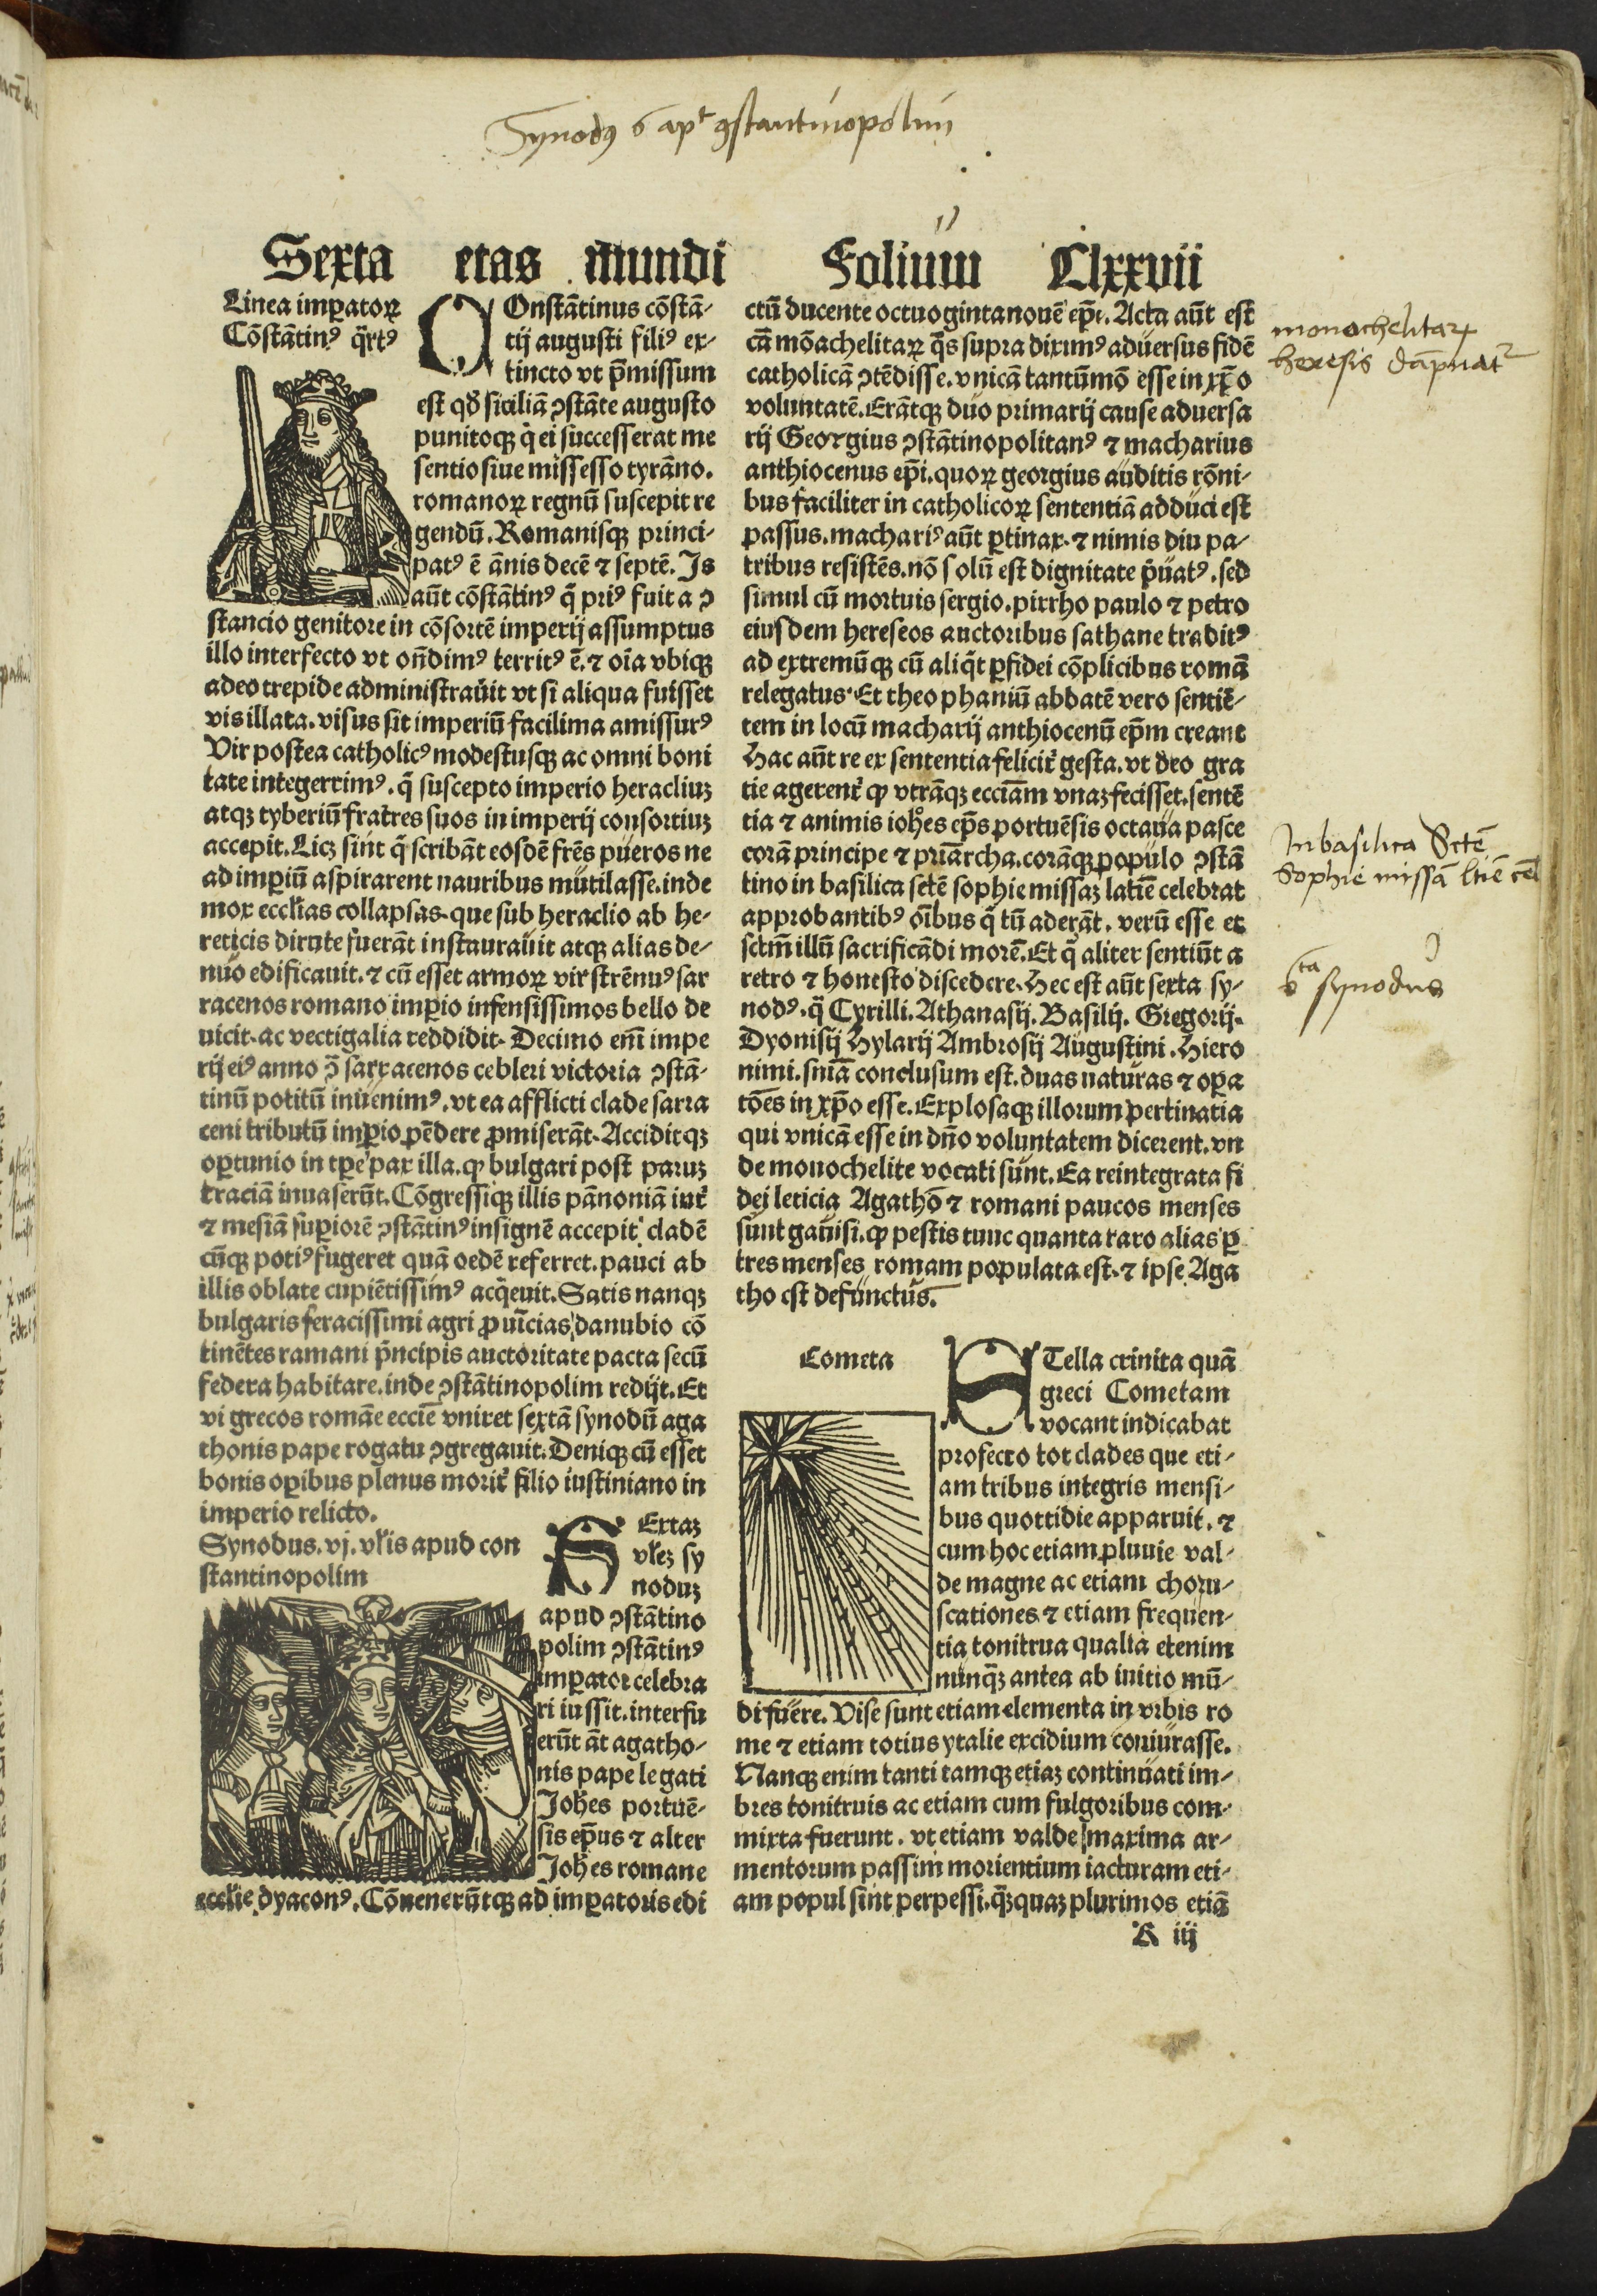 Synodꝰ 6 apᵗ ꝯstantinopolim
Sexta etas mundi Folium Clxxvii
Linea imꝑatoꝝ
Cōstātinꝰ q̄rtꝰ
COnstātinus cōstā-
tij augusti filiꝰ ex-
tincto vt p̄missum
est qḋ siciliā ꝯstāte augusto
punitoqꝫ q̇ ei successerat me
sentio siue missesso tyrāno.
romanoꝝ regnū suscepit re
gendū. Romanisqꝫ princi-
patꝰ ē ānis decē ⁊ septē. Is
aūt cōstātinꝰ q̄ priꝰ fuit a ꝯ
stancio genitore in cōsortē imperij assumptus
illo interfecto vt on̄dimꝰ territꝰ ē. ⁊ oīa vbiqꝫ
adeo trepide administrauit vt si aliqua fuisset
vis illata. visus sit imperiū facilima amissurꝰ
Vir postea catholicꝰ modestusqꝫ ac omni boni
tate integerrimꝰ. q̄ suscepto imperio heracliuꝫ
atqꝫ tyberiū fratres suos in imperij consortiuꝫ
accepit. Licꝫ sint q̄ scribāt eosdē frēs pueros ne
ad imꝑiū aspirarent nauribus mutilasse. inde
mox ecclīas collapsas. que sub heraclio ab he-
reticis dirute fuerāt instaurauit atqꝫ alias de-
nuo edificauit. ⁊ cū esset armoꝝ vir strēnuꝰ sar
racenos romano imꝑio infensissimos bello de
uicit. ac vectigalia reddidit. Decimo enī impe
rij eiꝰ anno ꝯ̄ sarracenos cebleri victoria ꝯstā-
tinū potitū inuenimꝰ. vt ea afflicti clade sarra
ceni tributū imꝑio pēdere ꝓmiserāt. Acciditqꝫ
oꝑtunio in tꝑe pax illa. ꝙ bulgari post paruꝫ
traciā inuaserūt. Cōgressiqꝫ illis pānoniā iuxͭ
⁊ mesiā suꝑiorē ꝯstātinꝰ insignē accepit cladē
cūqꝫ potiꝰ fugeret quā oedē referret. pauci ab
illis oblate cupiētissimꝰ acq̄euit. Satis nanqꝫ
bulgaris feracissimi agri ꝓuīcias danubio cō
tinētes ramani p̄ncipis auctoritate pacta secū
federa habitare. inde ꝯstātinopolim redijt. Et
vi grecos romāe eccīe vniret sextā synodū aga
thonis pape rogatu ꝯgregauit. Deniqꝫ cū esset
bonis oꝑibus plenus moriť filio iustiniano in
imperio relicto.
Synodus. vj. vl̄is apud con
stantinopolim
SExtaꝫ
vl̄eꝫ sy
noduꝫ
apud ꝯstātino
polim ꝯstātinꝰ
imꝑator celebra
ri iussit. interfu
erūt āt agatho-
nis pape legati
Joh̄es portuē-
sis ep̄us ⁊ alter
Joh̄es romane
eccl̄ie dyaconꝰ. Cōuenerūtqꝫ ad imꝑatoris edi
ctū ducente octuogintanouē ep̄i. Acta aūt est
cā mōachelitaꝝ q̄s supra diximꝰ aduersus fidē
catholicā ꝯtēdisse. vnicā tantūmō esse in xp̄o
voluntatē. Erātqꝫ duo primarij cause aduersa
rij Georgius ꝯstātinopolitanꝰ ⁊ macharius
anthiocenus ep̄i. quoꝝ georgius auditis rōni-
bus faciliter in catholicoꝝ sententiā adduci est
passus. machariꝰ aūt ꝑtinax. ⁊ nimis diu pa-
tribus resistēs. nō solū est dignitate p̄uatꝰ. sed
simul cū mortuis sergio. pirrho paulo ⁊ petro
eiusdem hereseos auctoribus sathane traditꝰ
ad extremūqꝫ cū aliq̄t ꝑfidei cōplicibus romā
relegatus. Et theophaniū abbatē vero sentiē-
tem in locū macharij anthiocenū ep̄m creant
Hac aūt re ex sententia feliciť gesta. vt deo gra
tie agerenť ꝙ vtrāqꝫ ecciam vnaꝫ fecisset. sentē
tia ⁊ animis ioh̄es ep̄s portuēsis octaua pasce
corā principe ⁊ pri̅archa. corāqꝫ populo ꝯstā
tino in basilica sctē sophie missaꝫ latīe celebrat
approbantibꝰ oībus q̄ tū aderāt. verū esse et
sctm̄ illū sacrificādi morē. Et q̄ aliter sentiūt a
retro ⁊ honesto discedere. Hec est aūt sexta sy-
nodꝰ. q̄ Cyrilli. Athanasij. Basilij. Gregorij.
Dyonisij Hylarij Ambrosij Augustini. Hiero
nimi. snīa conclusum est. duas naturas ⁊ oꝑa
tōes in xp̄o esse. Explosaqꝫ illorum pertinatia
qui vnicā esse in dn̄o voluntatem dicerent. vn
de monochelite vocati sunt. Ea reintegrata fi
dei leticia Agathō ⁊ romani paucos menses
sunt gauisi. ꝙ pestis tunc quanta raro alias ꝑ
tres menses romam populata est. ⁊ ipse Aga
tho est defunctus.
Cometa
STella crinita quā
greci Cometam
vocant indicabat
profecto tot clades que eti-
am tribus integris mensi-
bus quottidie apparuit. ⁊
cum hoc etiam pluuie val-
de magne ac etiam choru-
scationes ⁊ etiam frequen-
tia tonitrua qualia etenim
nunq̄ꝫ antea ab initio mū-
di fuere. Vise sunt etiam elementa in vrbis ro
me ⁊ etiam totius ytalie excidium coniurasse.
Nanqꝫ enim tanti tamqꝫ etiaꝫ continuati im-
bres tonitruis ac etiam cum fulgoribus com-
mixta fuerunt. vt etiam valde maxima ar-
mentorum passim morientium iacturam eti-
am popul sint perpessi. q̄ꝫquaꝫ plurimos etiā
K iij
monachelitaꝝ
heresis dāpnatᵘʳ
In basilica Sctē
Sophie missā ltīe cel
6ᵗᵃ synodus